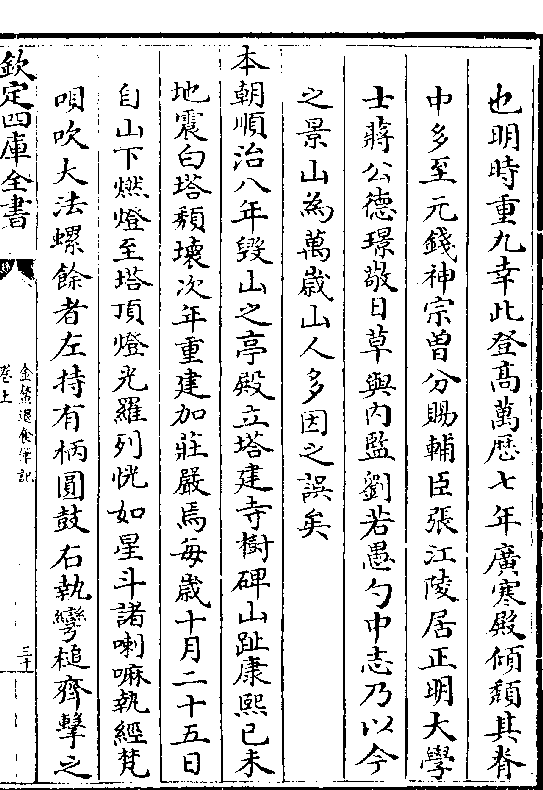 也明時重九幸此登高萬歴七年廣寒殿傾頽其脊
中多至元錢神宗曽分賜輔臣張江陵居正明大學
士蔣公德璟敬日草與内監劉若愚勺中志乃以今
之景山為萬嵗山人多因之誤矣
本朝順治八年毀山之亭殿立塔建寺樹碑山趾康熙已未
地震白塔頽壊次年重建加莊嚴焉每嵗十月二十五日
自山下燃燈至塔頂燈光羅列恍如星斗諸喇嘛執經梵
唄吹大法螺餘者左持有柄圓鼓右執彎槌齊擊之
欽定四庫全書
金鰲退食筆記
卷上
三十